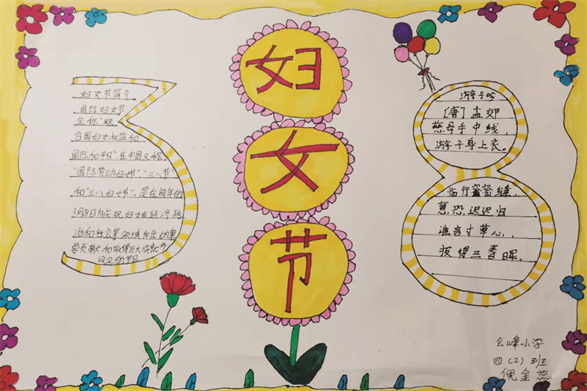 妇女节
妇女节简介
国际妇女节
全称“联
合国妇女权益和
国际和平日”在中国又称
“国际劳动妇女节”、“三八节”
和“三八妇女节”。是在每年的
3月8日为庆祝妇女在经济、政
治和社会等领域作出的重
要贡献和取得的巨大成就而
设立的节日
游子吟
[唐]孟郊
慈母手中线，
游子身上衣。
临行密密缝，
意恐迟迟归
谁言寸草心，
报得三春晖。
四（2）班